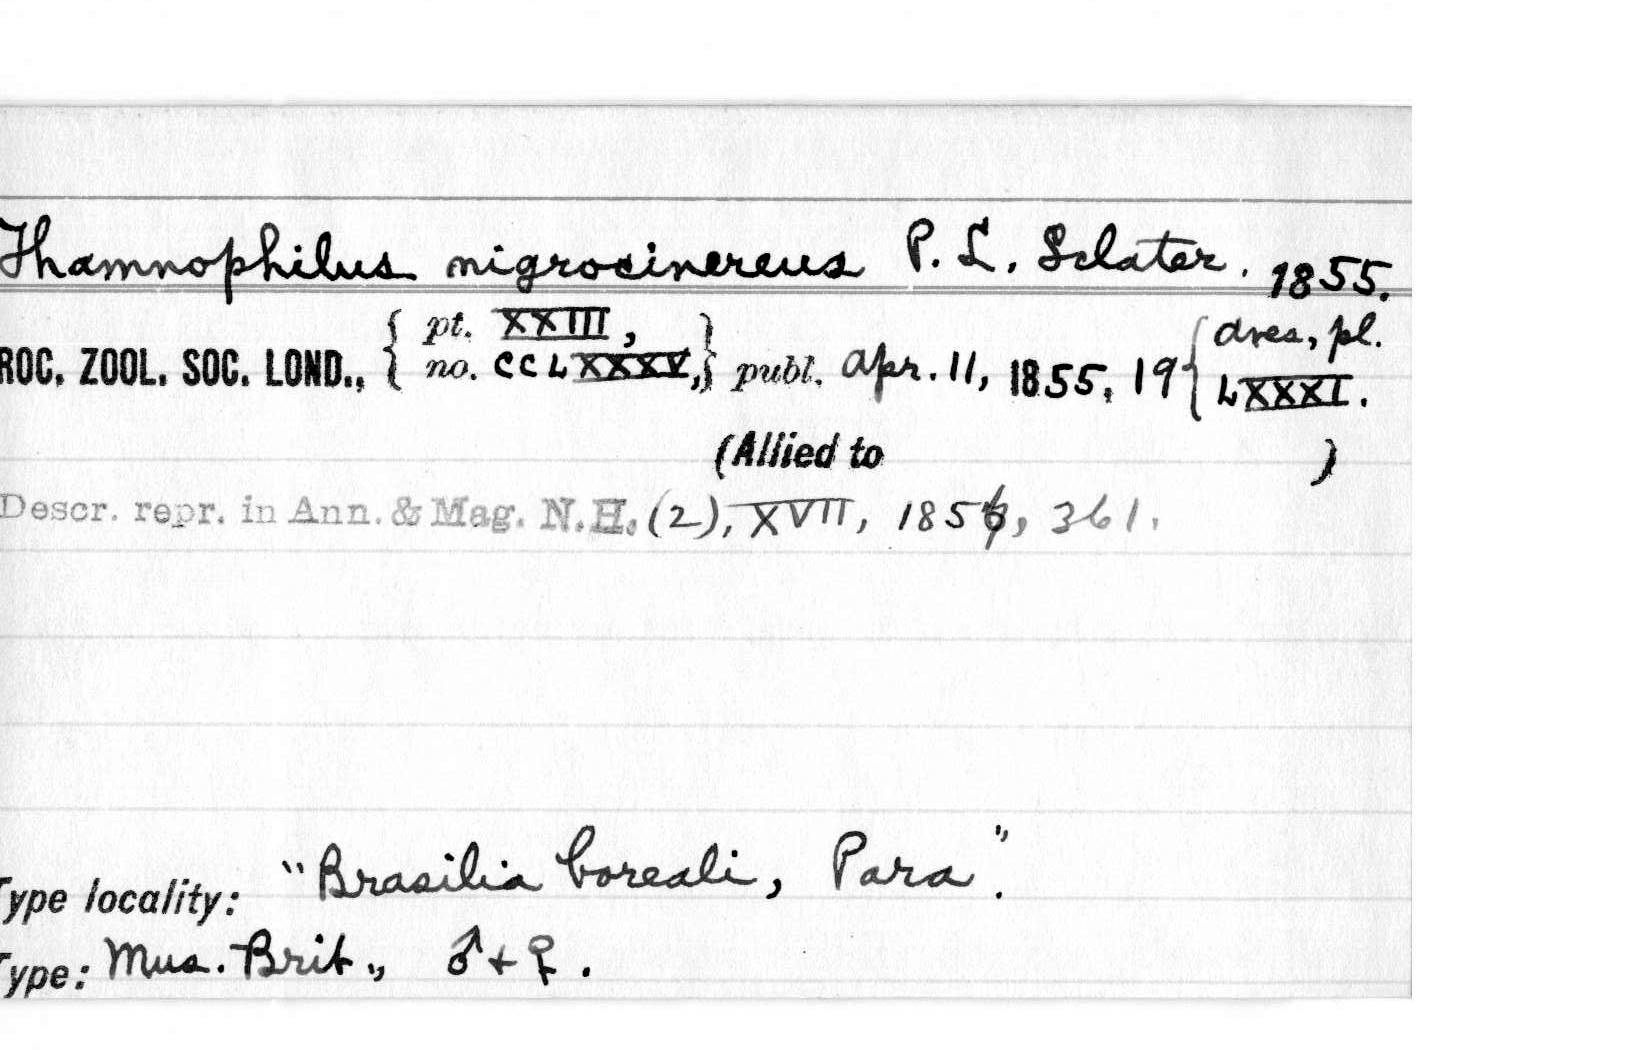 Thamnophilus nigrocinereus P. L. Sclater. 1855.
ROC. ZOOL. SOC. LOND., { pt. XXIII, no. CCLXXXV, } publ. Apr. 11, 1855, 19 { Aves, pl. LXXXI.
(Allied to )
Descr. repr. in Ann. & Mag. N.H. (2), XVII, 1856, 361.
Type locality: "Brasilia boreali, Para".
Type: Mus. Brit., ♂ + ♀.